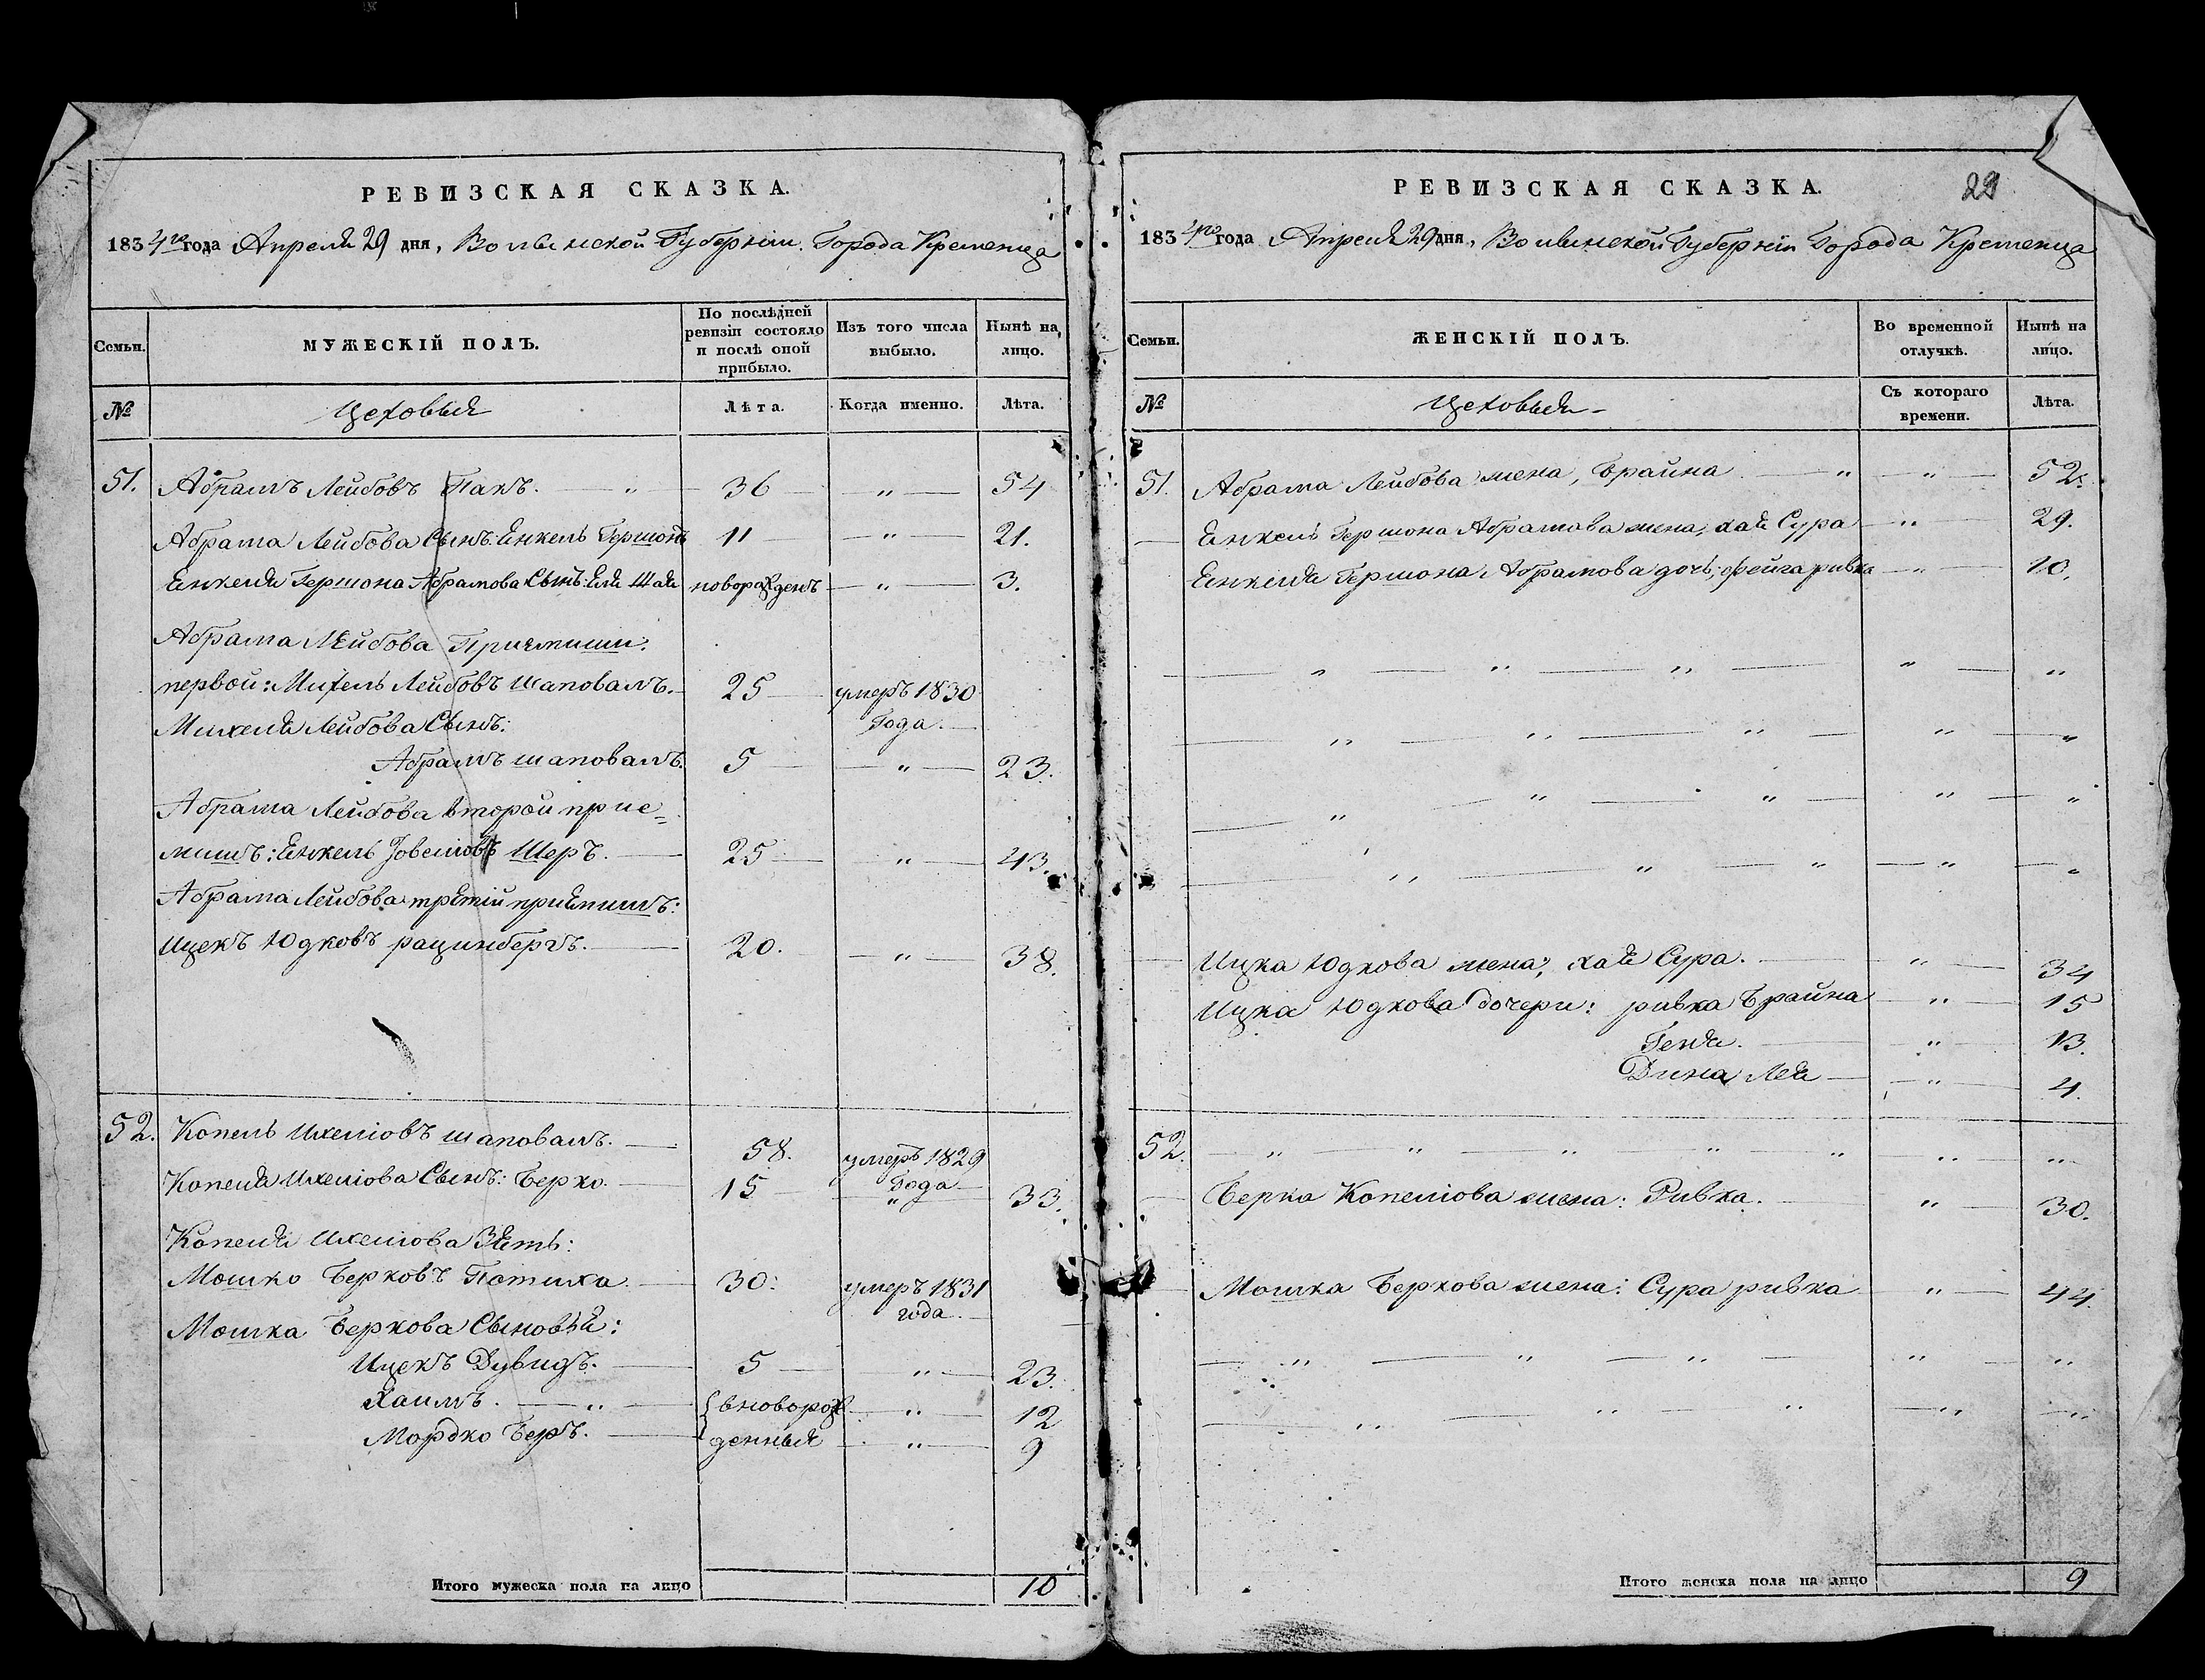 РЕВИЗСКАЯ СКАЗКА.
1834го года Апреля 29 дня, Волынской Губерніи. Города Кременца
Семьи. МУЖЕСКІЙ ПОЛЪ. По послѣдней ревизіи состояло и послѣ оной прибыло. Изъ того числа выбыло. Нынѣ на лицо.
№ Цеховыя Лѣта. Когда именно. Лѣта.
51. Абрамъ Лейбовъ Пакъ. " 36 " 54
Абрама Лейбова Сынъ: Енкель Гершонъ 11 " 21.
Енкеля Гершона Абрамова Сынъ: Еля Шая новорожденъ " 3.
Абрама Лейбова Приемыши:
первой: Михель Лейбовъ шаповалъ. 25 умеръ 1830
Михеля Лейбова Сынъ: Года.
Абрамъ шаповалъ. 5 " 23.
Абрама Лейбова второй прие=
мышъ: Енкель Іовеліовъ Шеръ. 25 " 43.
Абрама Лейбова третій приемышъ:
Ицекъ Юдковъ рацинбергъ. 20. " 38.
52. Копель Ихеліовъ шаповалъ. 58. умеръ 1829
Года
Копеля Ихеліова Сынъ: Берко. 15 " 33.
Копеля Ихеліова Зять:
Мошко Берковъ Потиха. 30: умеръ 1831
года.
Мошка Беркова Сыновья:
Ицекъ Дувидъ. 5 " 23.
Хаимъ. " { вноворож " 12
Мордко Беръ. { денныя " 9
Итого мужеска пола на лицо 10
РЕВИЗСКАЯ СКАЗКА. 29
1834го года Апреля 29 дня, Волынской Губерніи Города Кременца
Семьи. ЖЕНСКІЙ ПОЛЪ. Во временной отлучкѣ. Нынѣ на лицо.
№ Цеховыя Съ котораго времени. Лѣта.
51. Абрама Лейбова жена, Брайна " " 52.
Енкель Гершона Абрамова жена, хая Сура " 29.
Енкеля Гершона Абрамова дочь; Фейга ривка " 10.
" " " " "
" " " " "
" " " " "
" " " " "
Ицка Юдкова жена; хая Сура. " 34
Ицка Юдкова дочери: ривка Брайна " 15
Геня. " 13.
Дина Лея " 4.
52. " " " " " " "
Берка Копеліова жена: Ривка. " 30.
Мошка Беркова жена: Сура ривка " 44.
" " " " "
" " " " "
Итого женска пола на лицо 9